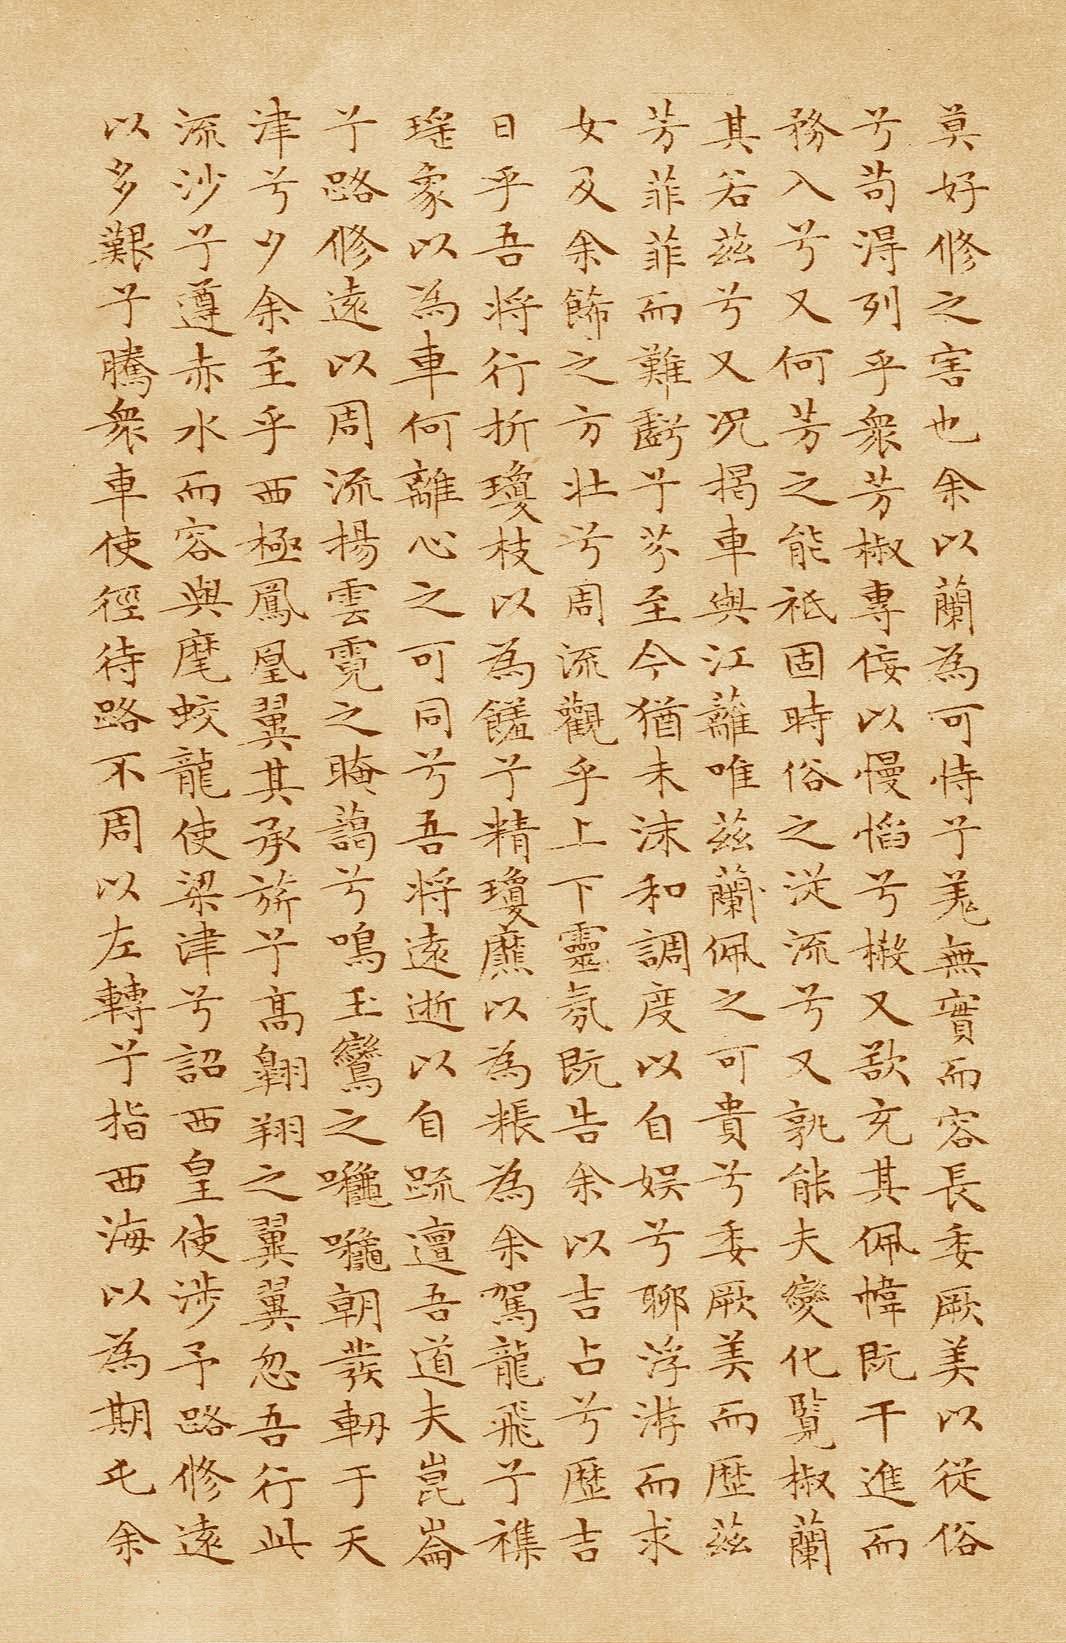 莫好修之害也余以蘭為可恃兮羌無實而容長委厥美以從俗
兮苟得列乎衆芳椒專佞以慢慆兮樧又欲充其佩幃既干進而
務入兮又何芳之能祗固時俗之從流兮又孰能夫變化覽椒蘭
其若茲兮又況揭車與江蘺唯茲蘭佩之可貴兮委厥美而歷茲
芳菲菲而難虧兮芬至今猶未沬和調度以自娛兮聊浮游而求
女及余飾之方壯兮周流觀乎上下靈氛既告余以吉占兮歷吉
日乎吾將行折瓊枝以為饈兮精瓊爢以為粻為余駕龍飛兮襍
瑤象以為車何離心之可同兮吾將遠逝以自疏邅吾道夫崑崙
兮路修遠以周流揚雲霓之晻藹兮鳴玉鸞之啾啾朝發軔于天
津兮夕余至乎西極鳳凰翼其承旂兮高翱翔之翼翼忽吾行此
流沙兮遵赤水而容與麾蛟龍使梁津兮詔西皇使涉予路修遠
以多艱兮騰衆車使徑待路不周以左轉兮指西海以為期屯余